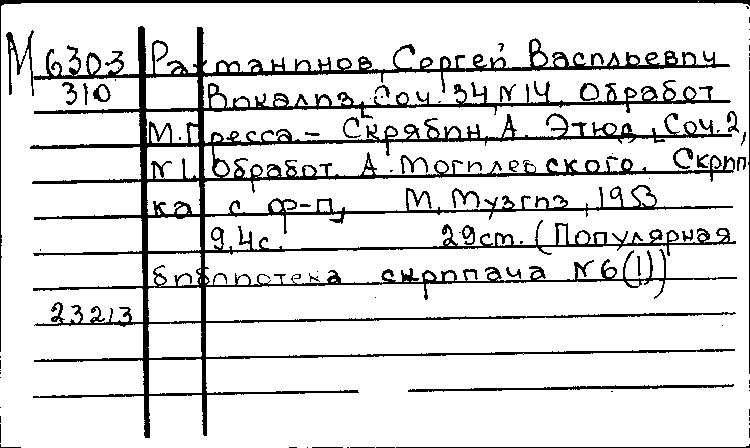 М 6303 Рахманинов, Сергей Васильевич
310 Вокализ, Соч. 34, N14, Обработ
М. Пресса. – Скрябин, А. Этюд, Соч. 2,
N1. Обработ. А. Могилевского. Скрип
ка с ф-п, М, Музгиз, 1953
9,4с. 29cm. (Популярная
библиотека скрипача N6(1))
23213